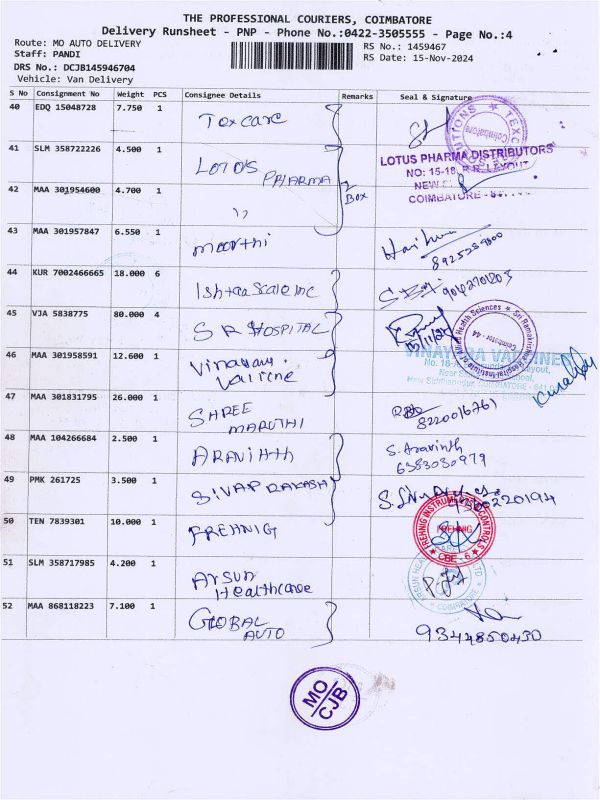 THE PROFESSIONAL COURIERS, COIMBATORE
Delivery Runsheet - PNP - Phone No.:0422-3505555 - Page No.:4
Route: MO AUTO DELIVERY
RS No.: 1459467
Staff: PANDI
RS Date: 15-Nov-2024
DRS No.: DCJB145946704
Vehicle: Van Delivery
S No Consignment No Weight PCS Consignee Details Remarks Seal & Signature
40 EDQ 15048728 7.750 1 Texcare
TEXC
Coimbatore
41 SLM 358722226 4.500 1 LOTUS PHARMA
LOTUS PHARMA DISTRIBUTORS
NO: 15-18, R.R. LAYOUT
NEW
COIMBATORE
42 MAA 301954600 4.700 1 ,,
2 Box
43 MAA 301957847 6.550 1 moorthi
44 KUR 7002466665 18.000 6 Ishtaa Scale Inc
45 VJA 5838775 80.000 4 S R HOSPITAL
15/11/24
Sri Ramakrishna Hospital Institute of Allied Health Sciences
Coimbatore-44
46 MAA 301958591 12.600 1 Vinayaga
Vaccine
VINAYAGA VACCINE
Layout,
COIMBATORE - 641 0
47 MAA 301831795 26.000 1 SHREE
MARUTHI
8220016761
48 MAA 104266684 2.500 1 ARAVINTH
S. Aravinth
6383030979
49 PMK 261725 3.500 1 SIVAPRAKASH
50 TEN 7839301 10.000 1 PREHNIG
PREHNIG INSTRUMENTS CONTROLS
PREHNIG
CBE - 6
51 SLM 358717985 4.200 1 Arsun
Healthcare
COIMBATORE
52 MAA 868118223 7.100 1 GLOBAL
AUTO
9344850430
MO
CJB